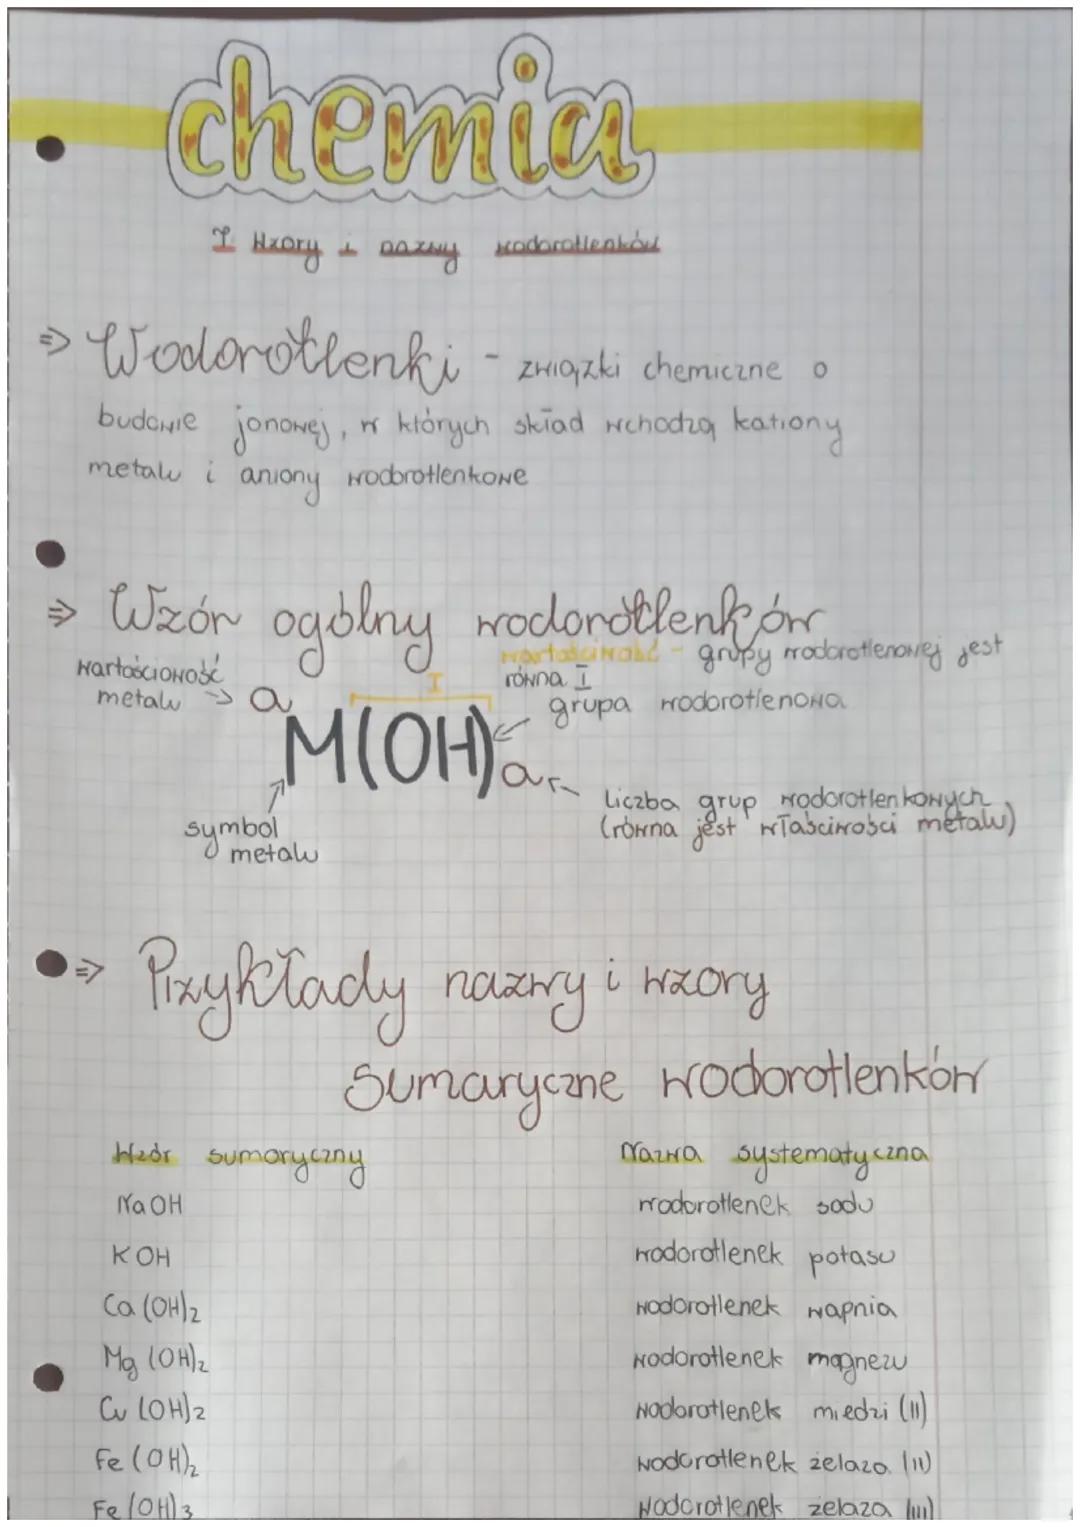 chemia
I Wzory i nazwy wodorotlenków
=> Wodorotlenki - związki chemiczne o
budowie jonowej, w których skład wchodzą kationy
metalu i aniony wodorotlenkowe
=> Wzór ogólny wodorotlenków
wartościowość - grupy wodorotlenowej jest
równa I
wartościowość
metalu -> a
I
grupa wodorotlenowa
M(OH)a
liczba grup wodorotlenkowych
(równa jest właściwości metalu)
symbol
metalu
=> Przykłady nazwy i wzory
sumaryczne wodorotlenków
Wzór sumaryczny Nazwa systematyczna
NaOH wodorotlenek sodu
KOH wodorotlenek potasu
Ca(OH)2 wodorotlenek wapnia
Mg(OH)2 wodorotlenek magnezu
Cu(OH)2 wodorotlenek miedzi (II)
Fe(OH)2 wodorotlenek żelaza (II)
Fe(OH)3 wodorotlenek żelaza (III)